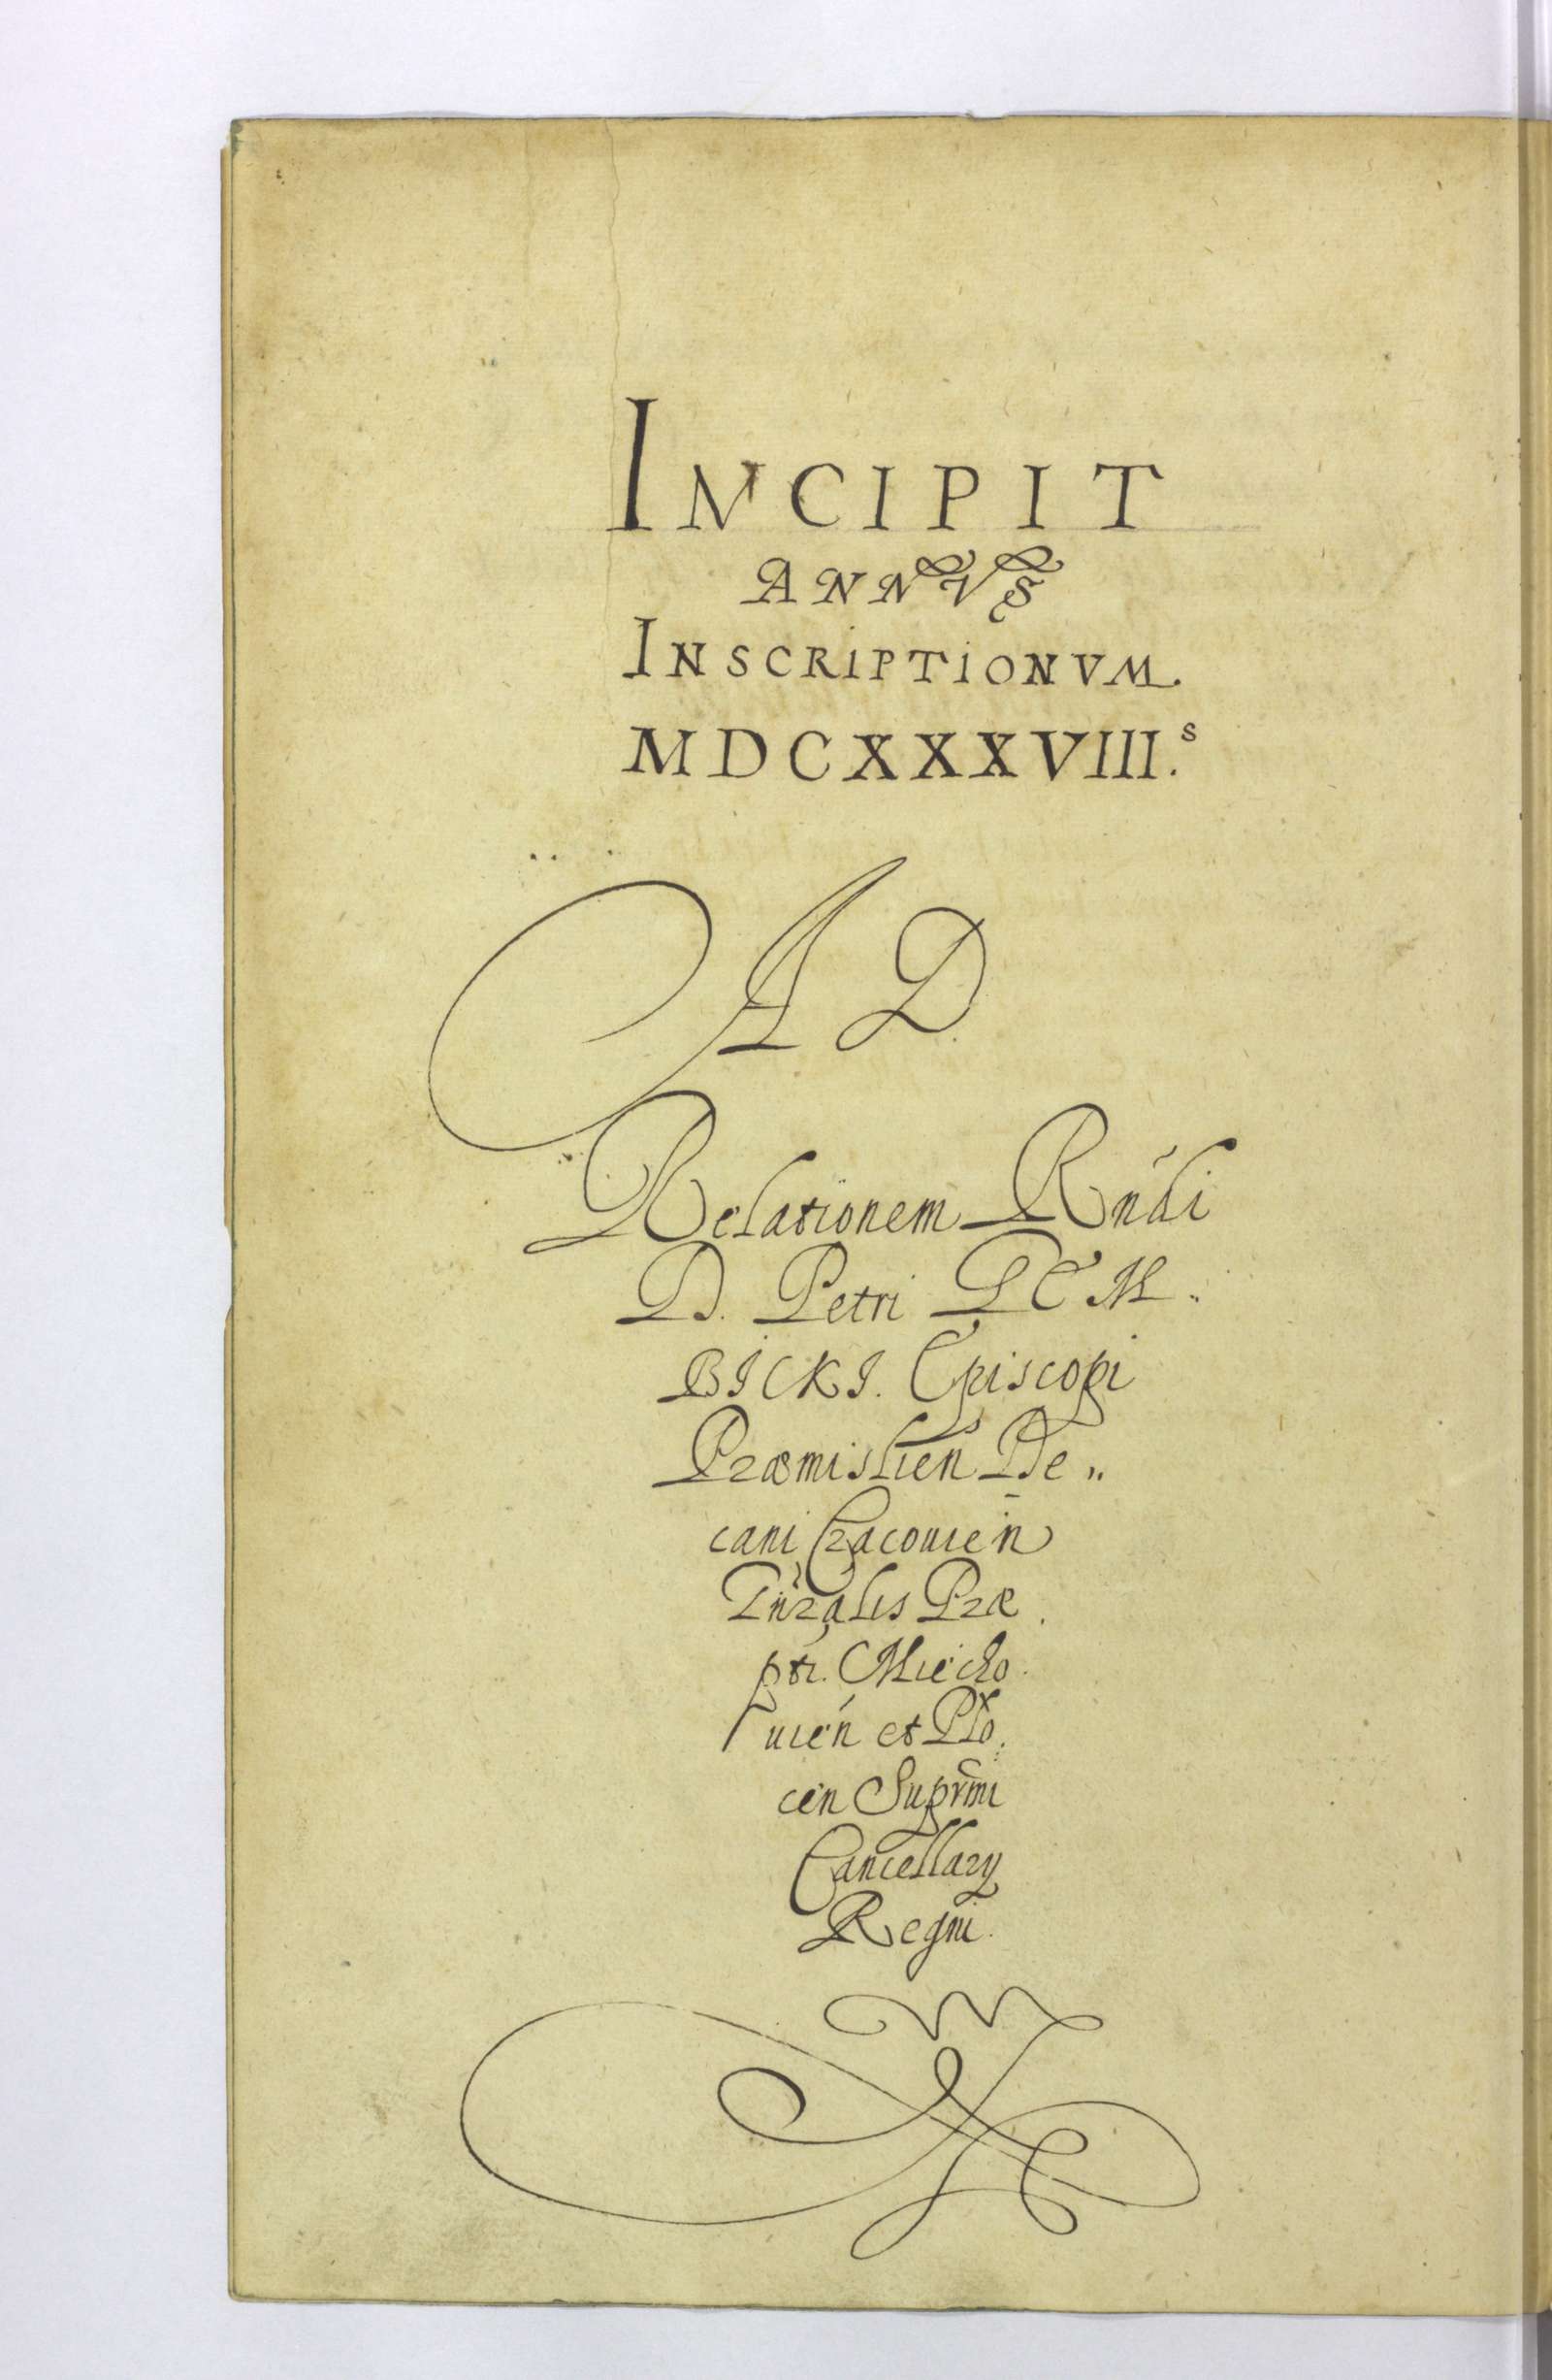 INCIPIT
ANNVS
INSCRIPTIONVM.
MDCXXXVIII.s
AD
Relationem Rńdi
D. Petri GEM„
BICKI. Episcopi
Præmislien̄ De„
cani Cracouien̄
Gńralis Præ
ptr. Miecho
uień et Plo:
cen̄ Suprmi
Cancellary
Regni.